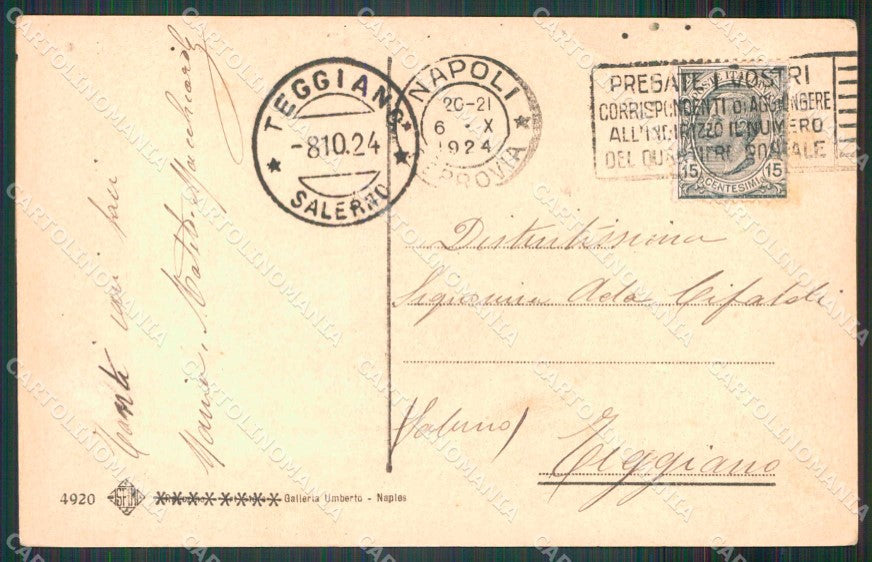 TEGGIANO
-8 10.24
SALERNO
NAPOLI
20-21
6 . X
1924
FERROVIA
PREGATE I VOSTRI
CORRISPONDENTI DI AGGIUNGERE
ALL'INDIRIZZO IL NUMERO
DEL QUARTIERE POSTALE
15 CENTESIMI 15
Distintissima
Signorina Ada Cifaldi
(Salerno)
Teggiano
Tanti cari baci
Maria
4920
Galleria Umberto - Naples
CARTOLINOMANIA